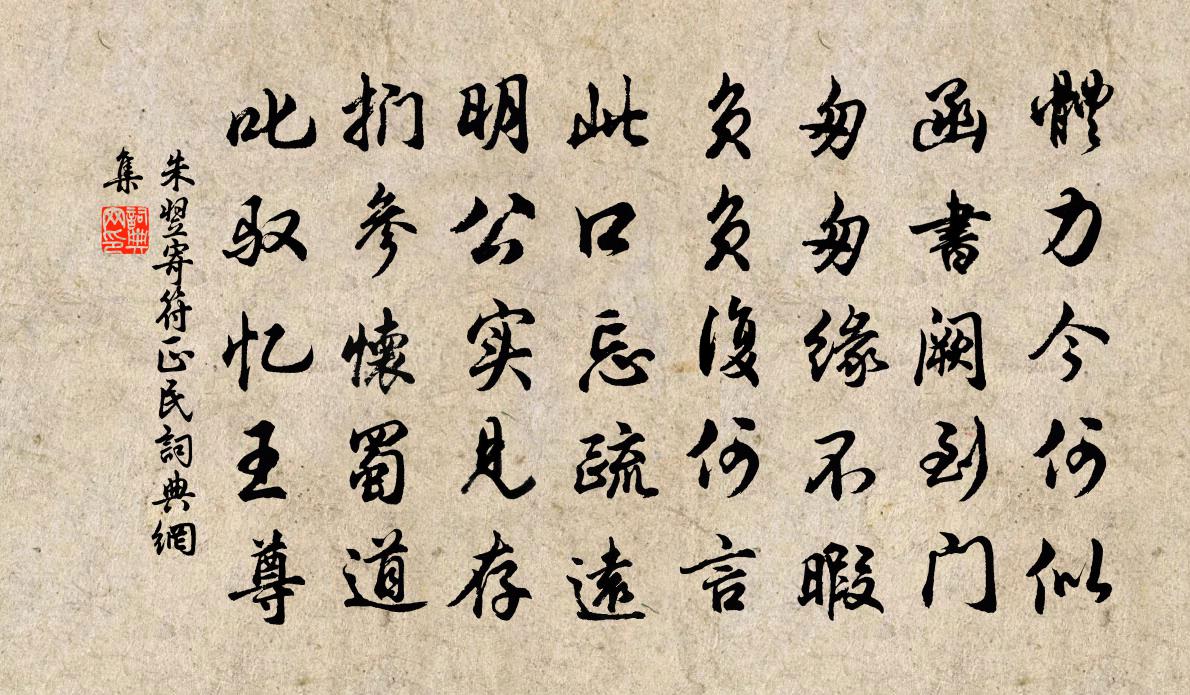 體力今何似
函書闕到门
匆匆緣不暇
負負復何言
此口忘疏遠
明公实見存
捫參懷蜀道
叱驭忆王尊
朱翌寄符正民詞典網
集
詞典
网印